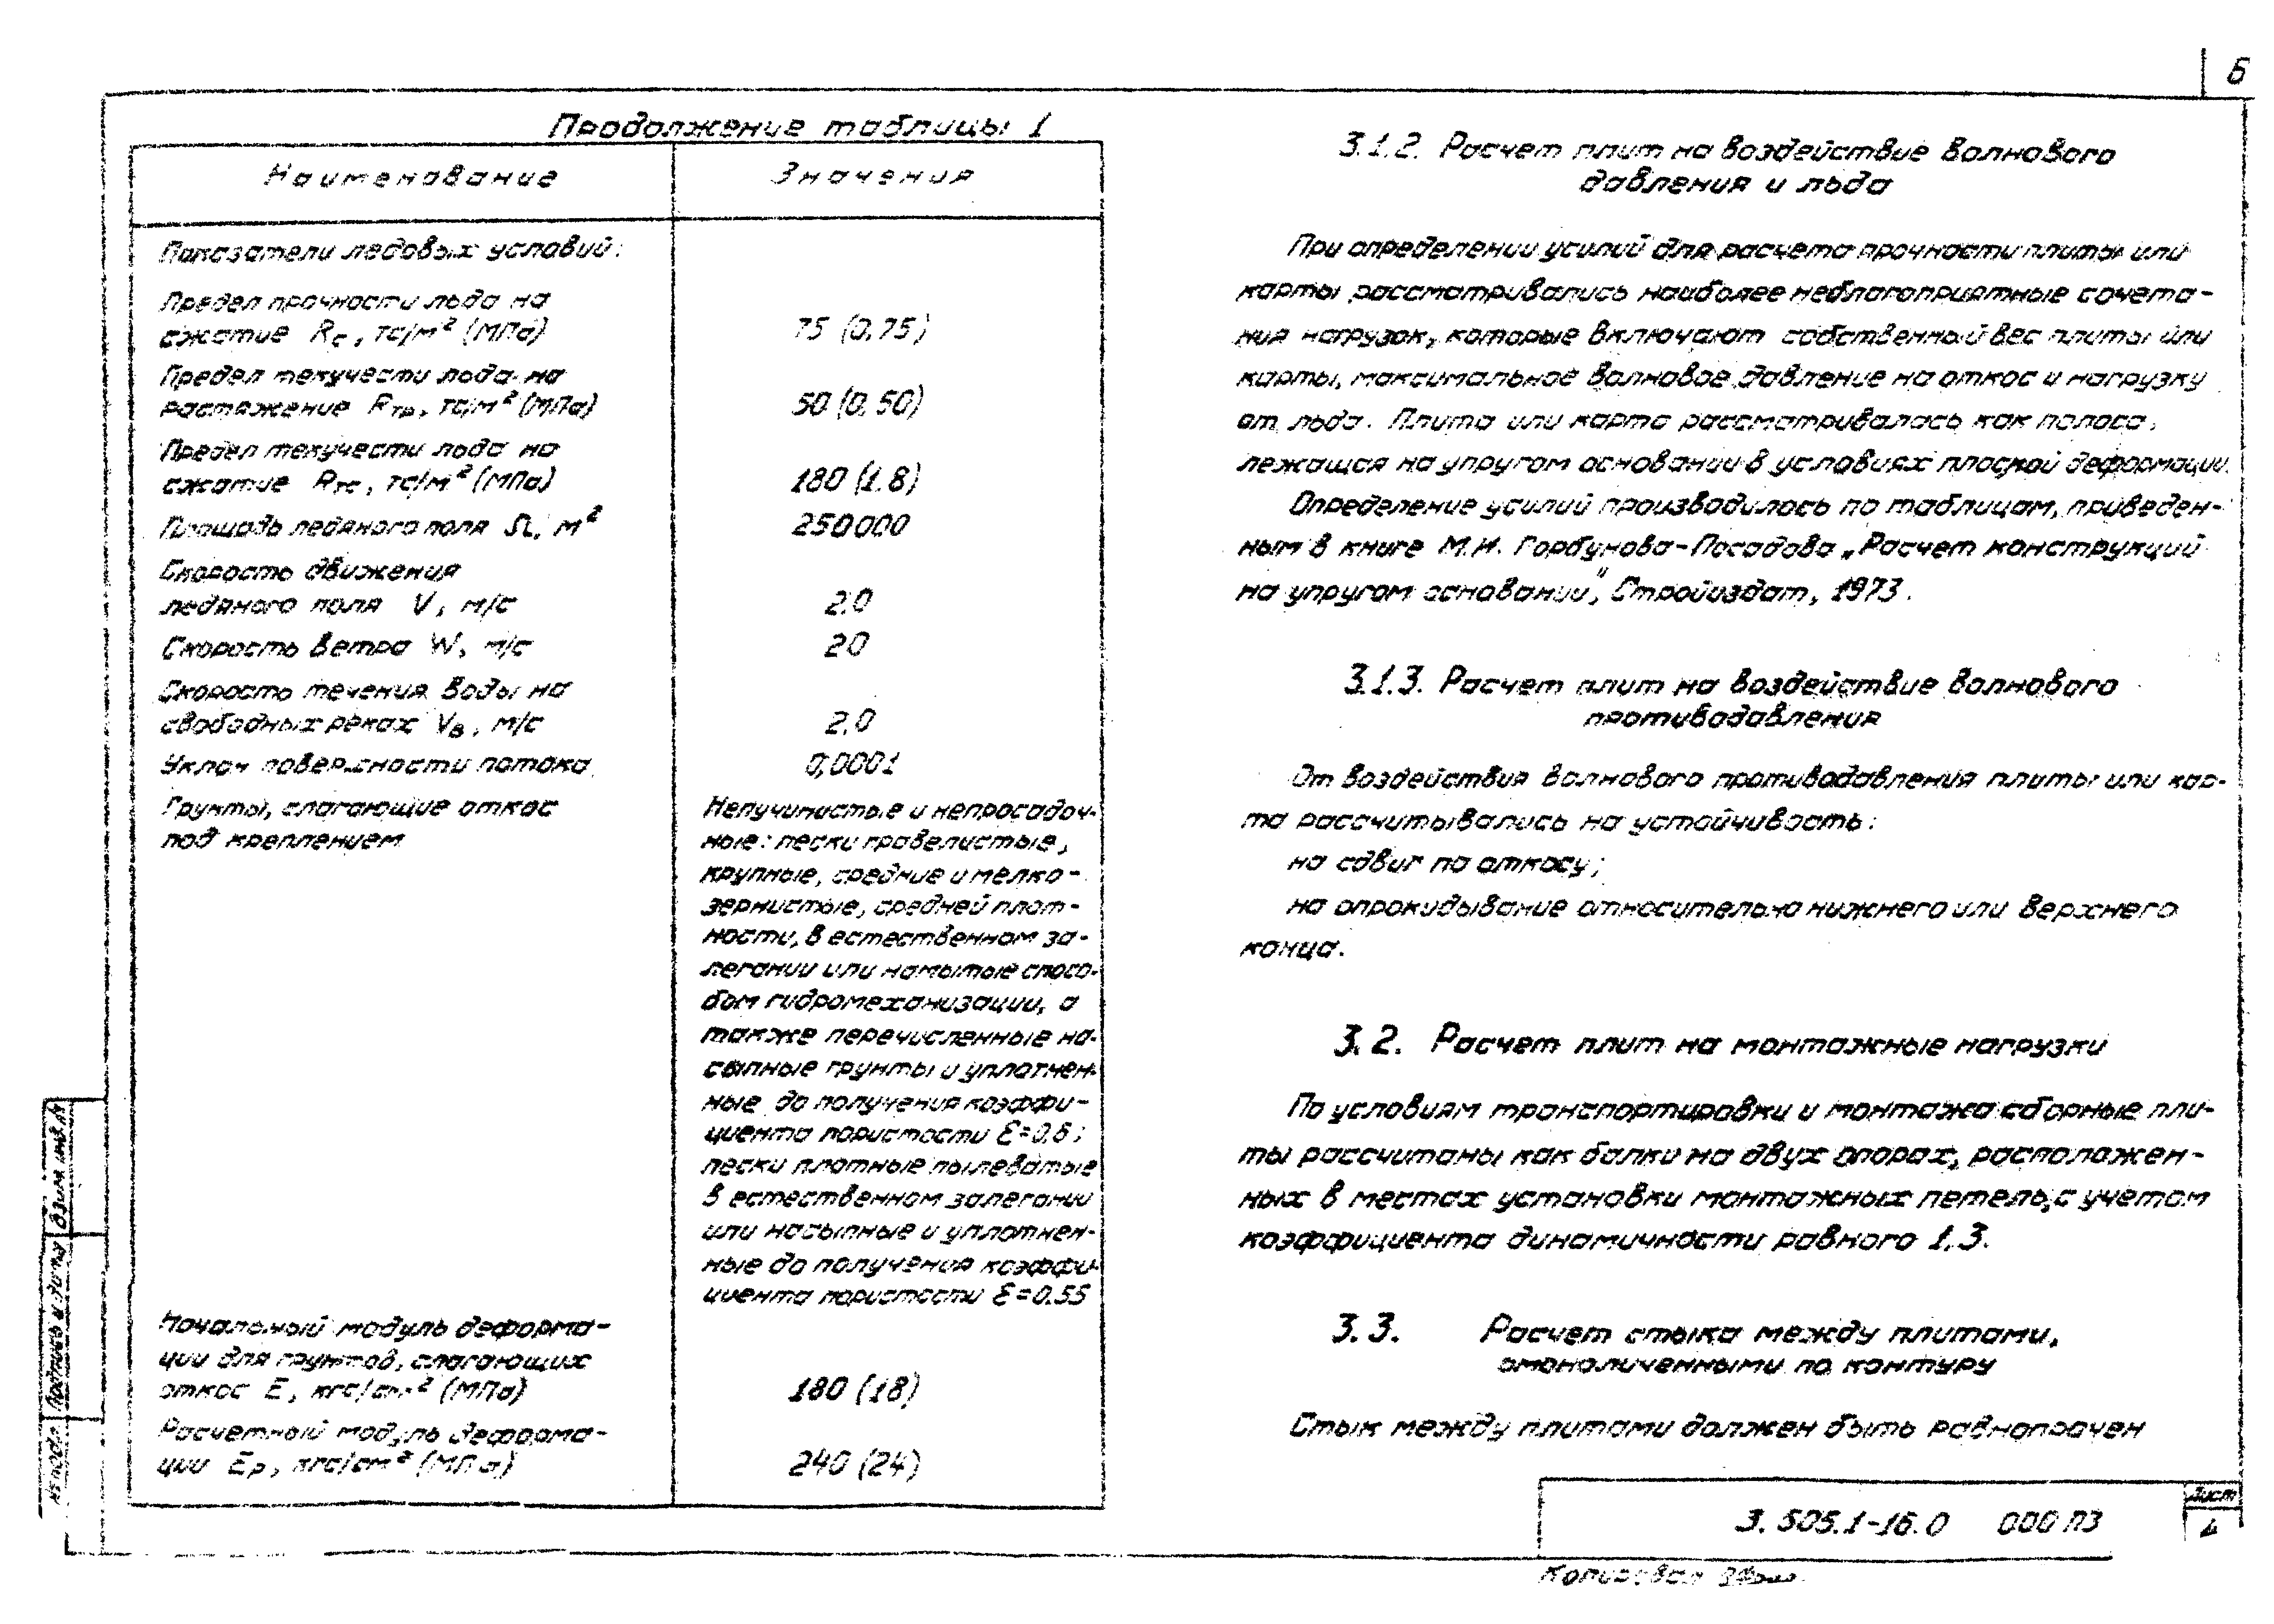 6
Продолжение таблицы 1
Наименование
Значения
Показатели ледовых условий:
Предел прочности льда на
сжатие Rс, тс/м² (МПа)
75 (0,75)
Предел текучести льда на
растяжение Rтр, тс/м² (МПа)
50 (0,50)
Предел текучести льда на
сжатие Rтс, тс/м² (МПа)
180 (1.8)
Площадь ледяного поля Ω, м²
250000
Скорость движения
ледяного поля V, м/с
2.0
Скорость ветра W, м/с
20
Скорость течения воды на
свободных реках Vв, м/с
2.0
Уклон поверхности потока
0,0001
Грунты, слагающие откос
под креплением
Непучинистые и непросадоч-
ные: пески гравелистые,
крупные, средние и мелко-
зернистые, средней плот-
ности, в естественном за-
легании или намытые спосо-
бом гидромеханизации, а
также перечисленные на-
сыпные грунты и уплотнен-
ные до получения коэффи-
циента пористости Ɛ=0,6;
пески плотные пылеватые
в естественном залегании
или насыпные и уплотнен-
ные до получения коэффи-
циента пористости Ɛ=0.55
Начальный модуль деформа-
ции для грунтов, слагающих
откос Е, кгс/см² (МПа)
180 (18)
Расчетный модуль деформа-
ции Ер, кгс/см² (МПа)
240 (24)
3.1.2. Расчет плит на воздействие волнового
давления и льда
При определении усилий для расчета прочности плиты или
карты рассматривались наиболее неблагоприятные сочета-
ния нагрузок, которые включают собственный вес плиты или
карты, максимальное волновое давление на откос и нагрузку
от льда. Плита или карта рассматривалась как полоса,
лежащая на упругом основании в условиях плоской деформации.
Определение усилий производилось по таблицам, приведен-
ным в книге М.И. Горбунова-Посадова „Расчет конструкций
на упругом основании", Стройиздат, 1973.
3.1.3. Расчет плит на воздействие волнового
противодавления
От воздействия волнового противодавления плиты или кар-
та рассчитывались на устойчивость:
на сдвиг по откосу;
на опрокидывание относительно нижнего или верхнего
конца.
3.2. Расчет плит на монтажные нагрузки
По условиям транспортировки и монтажа сборные пли-
ты рассчитаны как балки на двух опорах, расположен-
ных в местах установки монтажных петель, с учетом
коэффициента динамичности равного 1.3.
3.3. Расчет стыка между плитами,
омоноличенными по контуру
Стык между плитами должен быть равнопрочен
3.505.1-16.0 000 ПЗ
Лист
4
Копировал
Взам инв.№
Подпись и дата